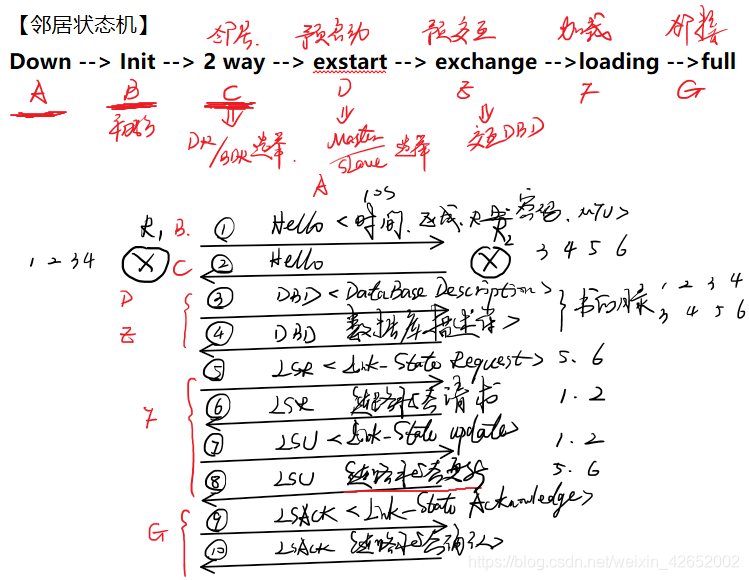 【邻居状态机】
邻居 预启动 预交互 加载 邻接
Down --> Init --> 2 way --> exstart --> exchange -->loading -->full
A B C D E F G
初始 DR/BDR选举. Master/Slave 选举 交互DBD
A
10S
R1 B. ① Hello <时间. 区域. 密码. MTU>
R2
1 2 3 4 X C ② Hello X 3 4 5 6
D ③ DBD <DataBase Description> 书的目录 1 2 3 4
E ④ DBD 数据库描述 > 3 4 5 6
⑤ LSR <Link-State Request> 5. 6
F ⑥ LSR 链路状态请求 1. 2
⑦ LSU <Link-State update> 1. 2
⑧ LSU 链路状态更新 5. 6
G ⑨ LSACK <Link-State Acknowledge>
⑩ LSACK 链路状态确认>
https://blog.csdn.net/weixin_42652002